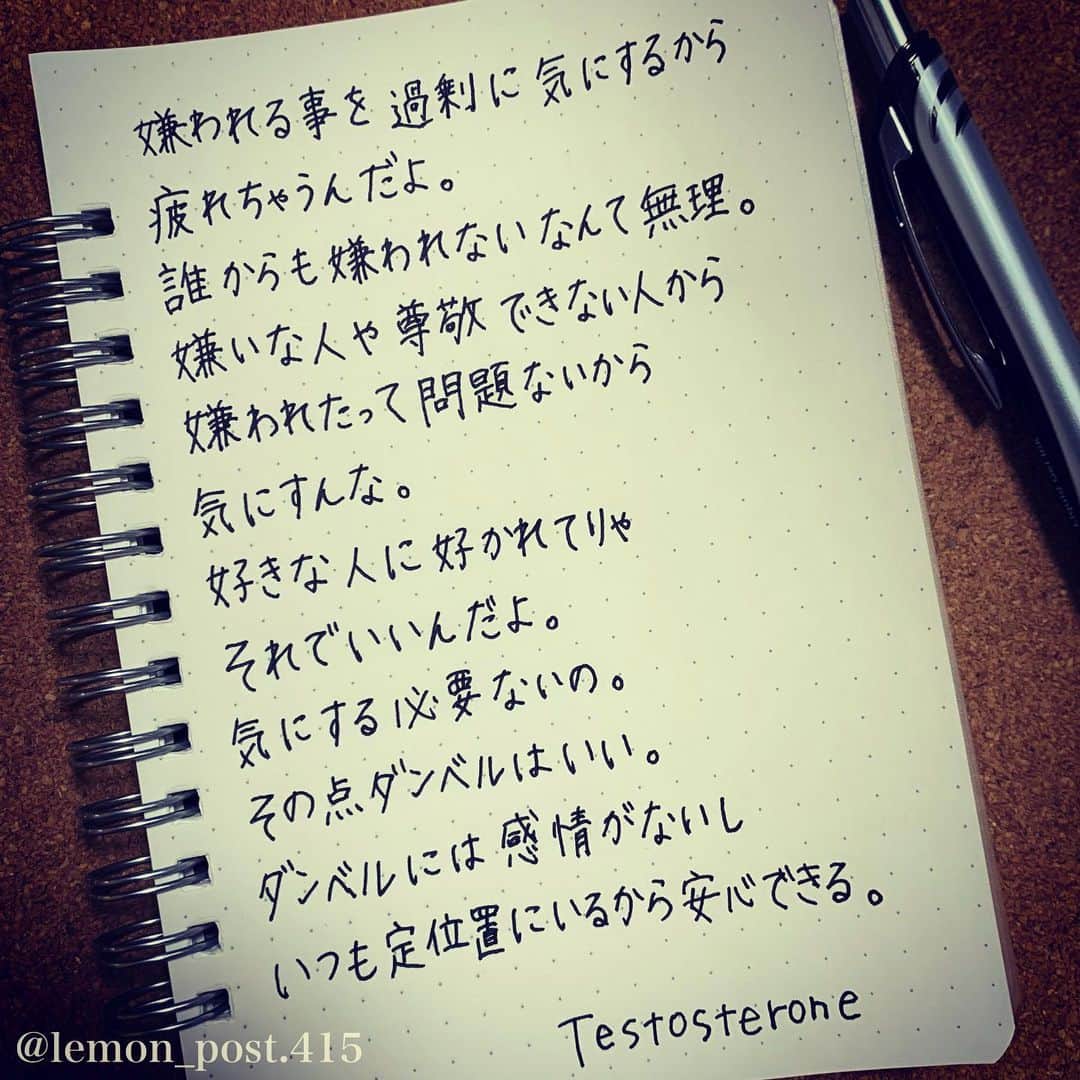 嫌われる事を過剰に気にするから
疲れちゃうんだよ。
誰からも嫌われないなんて無理。
嫌いな人や尊敬できない人から
嫌われたって問題ないから
気にすんな。
好きな人に好かれてりゃ
それでいいんだよ。
気にする必要ないの。
その点ダンベルはいい。
ダンベルには感情がないし
いつも定位置にいるから安心できる。
Testosterone
@lemon_post.415